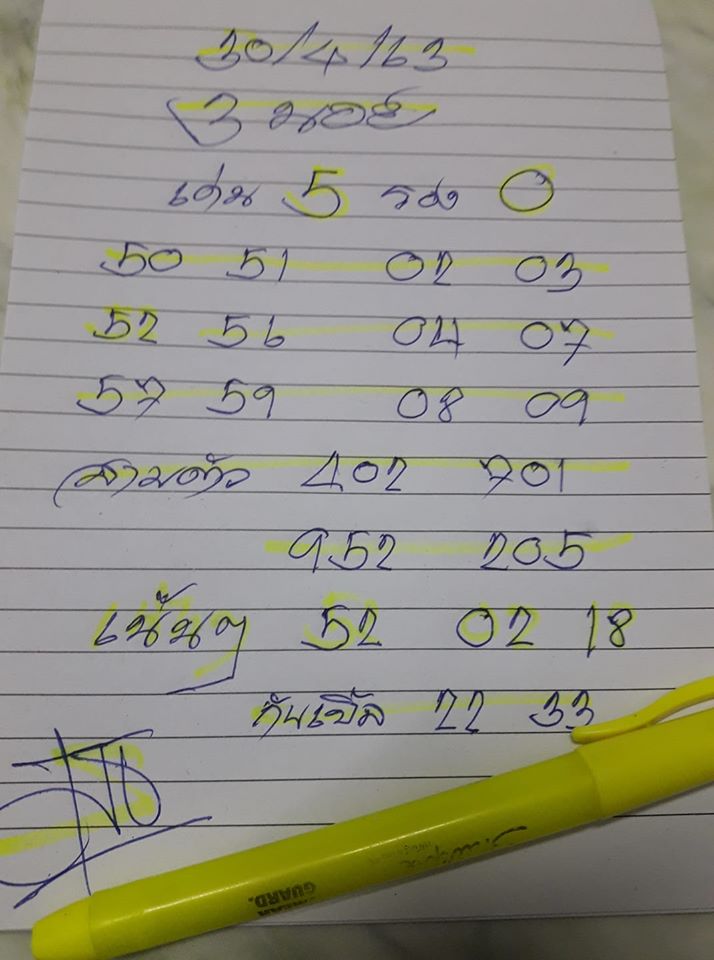 30/4/63
3 นอย
เด่น 5 รอง 0
50 51 02 03
52 56 04 07
57 59 08 09
สามตัว 402 701
952 205
เน้นๆ 52 02 18
กันเบิ้ล 22 33
GUARD.